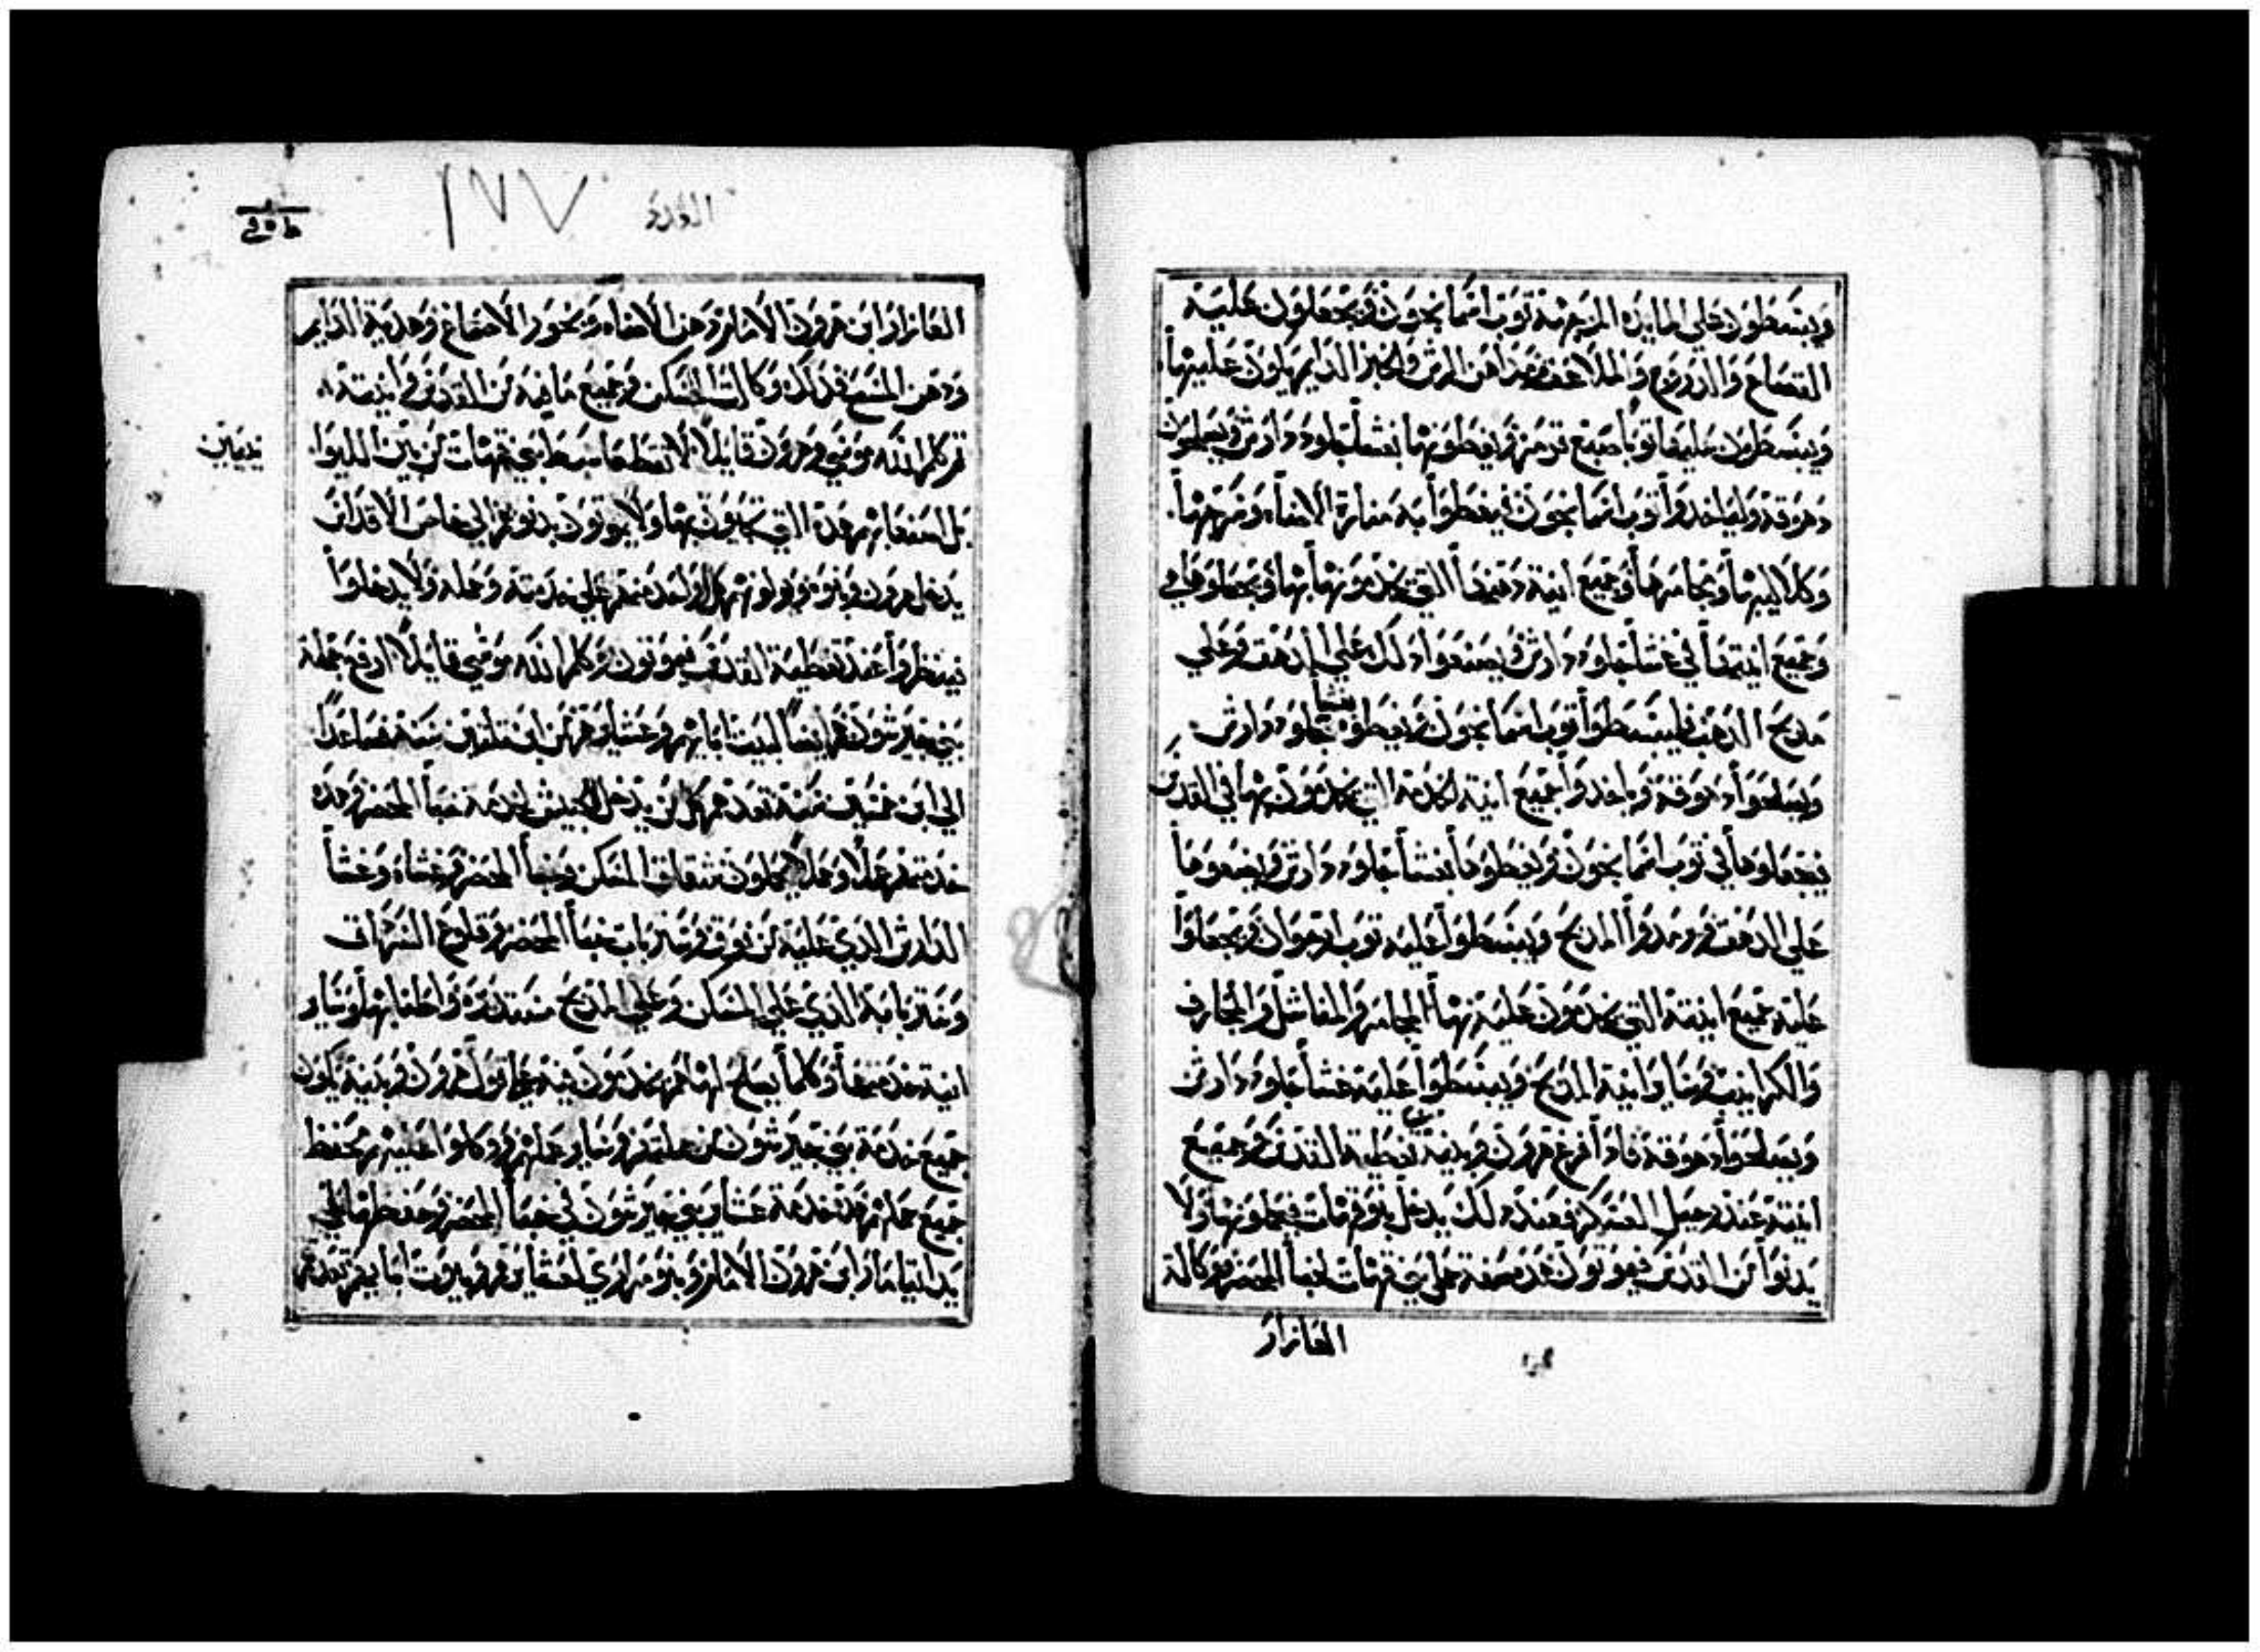 ويبسطون على المايدة المزهرمة ثوب اسمانجون ويجعلون عليه
القصاع والدروج والملاعق ومداهن الرش وخبز الدايم يكون عليها
ويبسطون عليها ثوبا صبغ قرمز ويغطونها بغشا جلود دارش ويصلحون
دهوقه وليأخدوا ثوب اسمانجون فيغطوا به منارة الاضاه وسرجها
وكلاليبها ومجامرها وجميع انية دهنها التي يخدمونها بها ويجعلوها هي
وجميع انيتها في غشا جلود دارش ويضعوا دلك على الدهق وعلى
مدبح الدهب فليبسطوا ثوب اسمانجون ويغطوه بغشا جلود دارش
ويصلحوا دهوقه وياخدوا جميع انية الخدمة التي يخدمون بها في القدس
فيجعلوها في ثوب اسمانجون ويغطوها بغشا جلود دارش ويضعوها
على الدهق ويرمدوا المدبح ويبسطوا عليه ثوب ارجوان ويجعلوا
عليه جميع انيته التي يخدمون عليه بها المجامر والمناشل والمجارف
والكرانيب وساير انية المدبح ويبسطوا عليه غشا جلود دارش
ويصلحوا دهوقه فادا فرغ هرون وبنيه من تغطية القدس وجميع
انيته عند رحيل العسكر فعند دلك يدخل بنو قهات فيحملونها ولا
يدنوا من القدس فيموتون هده صفة حمل بني قهات لخبا المحضر ووكالة
العازار
العدد
١٧٧
العازار ابن هرون الامام دهن الاضاه وبخور الاصماغ وهدية الدايم
ودهن المسح فدلك وكالت المسكن وجميع ما فيه من القدس وانيته
ثم كلم الله موسى وهرون قايلا لا تقطعا سبط بني قهات من بين الليوا
بل اصنعا بهم هده التي يحيون بها ولا يموتون بدنوهم الى خاص الاقداس
يدخل هرون وبنوه ويولونهم كل واحد منهم على خدمته وحمله ولا يدخلوا
فينظروا عند تغطية القدس فيموتون وكلم الله موسى قايلا ارفع جملة
بني جيرشون هم ايضا لبيت ابايهم وعشايرهم من ابن تلتين سنة فصاعدا
الى ابن خمسين سنة تعدهم كل من يدخل الجيش لخدمة خبا المحضر وهده
خدمتهم عملا وحملا يحملون شقاق المسكن وخبا المحضر وغشاه وغشا
الدارش الدي عليه من فوق وستر باب خبا المحضر وقلوع السرادق
وستر بابه الدي على المسكن وعلى المدبح مستديره واطنابها وساير
انية خدمتها وكلما يصلح لها هم يخدمون فيه على قول هرون وبنيه يكون
جميع خدمة بني جيرشون من حملهم وساير عملهم ووكلوا عليهم بحفظ
جميع حملهم هده خدمة عشاير بني جيرشون في خبا المحضر وحفظها الى
يد ايتامار ابن هرون الامام وبنو مراري لعشايرهم وبيوت ابايهم تعدهم